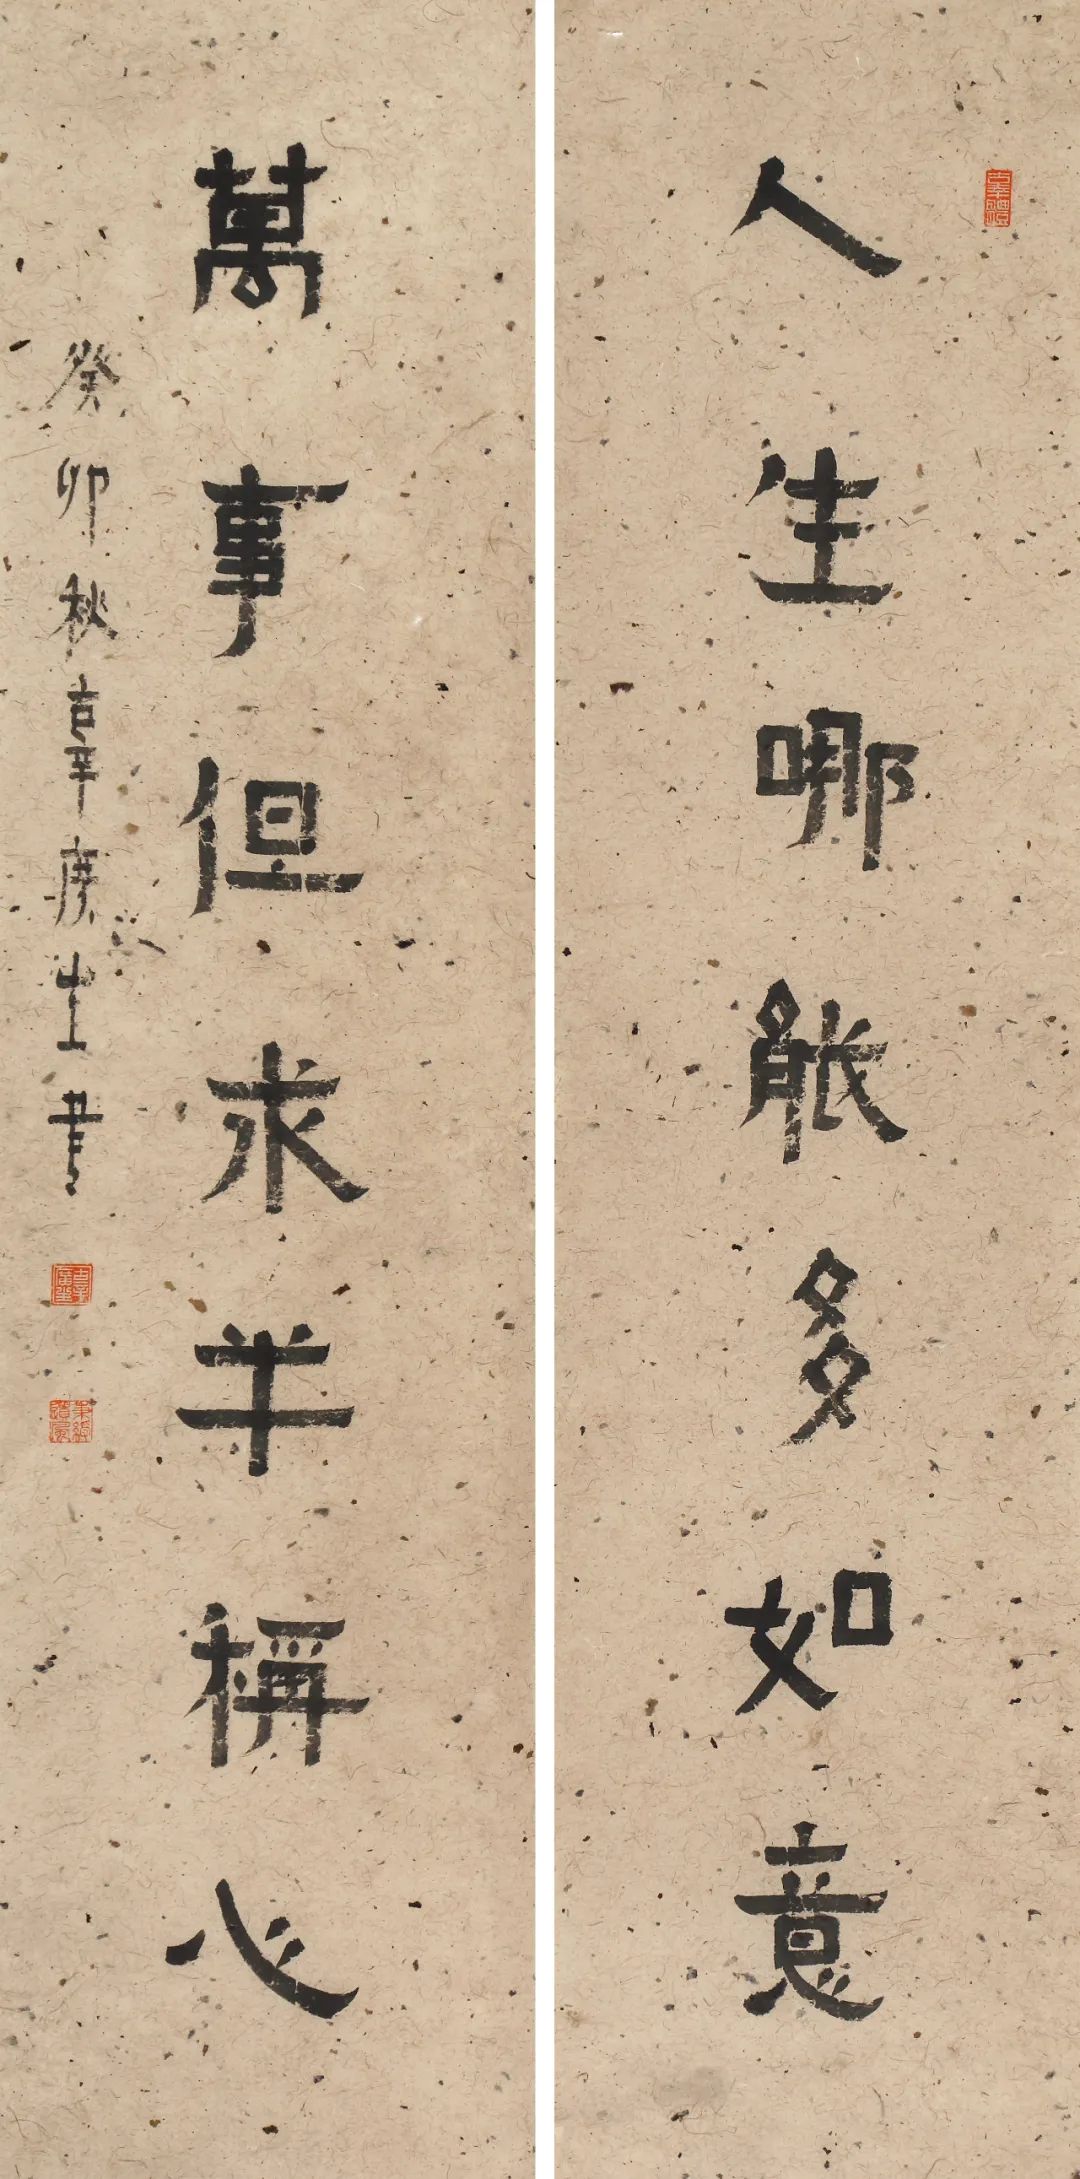 人生哪能多如意
萬事但求半稱心
癸卯秋辜庆生書